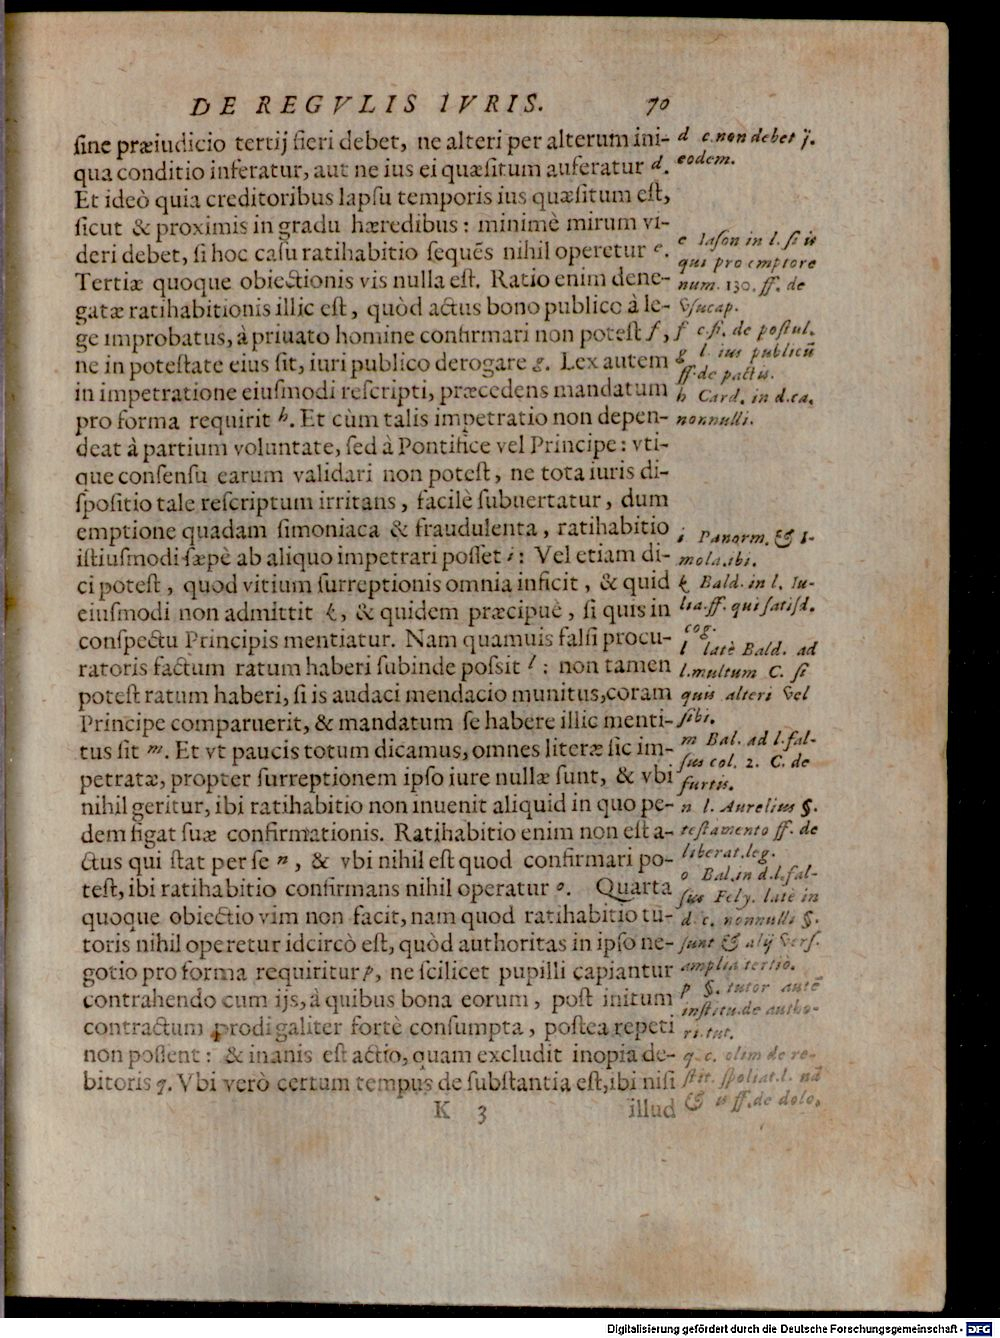 DE REGVLIS IVRIS. 70
ſine præiudicio tertij fieri debet, ne alteri per alterum ini-
qua conditio inferatur, aut ne ius ei quæſitum auferatur d.
Et ideò quia creditoribus lapſu temporis ius quæſitum eſt,
ſicut & proximis in gradu hæredibus: minimè mirum vi-
deri debet, ſi hoc caſu ratihabitio ſequēs nihil operetur e.
Tertiæ quoque obiectionis vis nulla eſt. Ratio enim dene-
gatæ ratihabitionis illic eſt, quòd actus bono publico à le-
ge improbatus, à priuato homine confirmari non poteſt f,
ne in poteſtate eius ſit, iuri publico derogare g. Lex autem
in impetratione eiuſmodi reſcripti, præcedens mandatum
pro forma requirit h. Et cùm talis impetratio non depen-
deat à partium voluntate, ſed à Pontifice vel Principe: vti-
que conſenſu earum validari non poteſt, ne tota iuris di-
ſpoſitio tale reſcriptum irritans, facilè ſubuertatur, dum
emptione quadam ſimoniaca & fraudulenta, ratihabitio
iſtiuſmodi ſæpè ab aliquo impetrari poſſet i: Vel etiam di-
ci poteſt, quod vitium ſurreptionis omnia inficit, & quid
eiuſmodi non admittit k, & quidem præcipuè, ſi quis in
conſpectu Principis mentiatur. Nam quamuis falſi procu-
ratoris factum ratum haberi ſubinde poſsit l: non tamen
poteſt ratum haberi, ſi is audaci mendacio munitus, coram
Principe comparuerit, & mandatum ſe habere illic menti-
tus ſit m. Et vt paucis totum dicamus, omnes literæ ſic im-
petratæ, propter ſurreptionem ipſo iure nullæ ſunt, & vbi
nihil geritur, ibi ratihabitio non inuenit aliquid in quo pe-
dem figat ſuæ confirmationis. Ratihabitio enim non eſt a-
ctus qui ſtat per ſe n, & vbi nihil eſt quod confirmari po-
teſt, ibi ratihabitio confirmans nihil operatur o. Quarta
quoque obiectio vim non facit, nam quod ratihabitio tu-
toris nihil operetur idcircò eſt, quòd authoritas in ipſo ne-
gotio pro forma requiritur p, ne ſcilicet pupilli capiantur
contrahendo cum ijs, à quibus bona eorum, poſt initum
contractum prodigaliter fortè conſumpta, poſtea repeti
non poſſent: & inanis eſt actio, quam excludit inopia de-
bitoris q. Vbi verò certum tempus de ſubſtantia eſt, ibi niſi
K 3 illud
d c. non debet j.
eodem.
e Iaſon in l. ſi is
qui pro emptore
num. 130. ff. de
vſucap.
f c. fi. de poſtul.
g l. ius publicū
ff. de pactis.
h Card. in d. ca.
nonnulli.
i Panorm. & I-
mola. ibi.
k Bald. in l. Iu-
lia. ff. qui ſatiſd.
cog.
l latè Bald. ad
l. multum C. ſi
quis alteri vel
ſibi.
m Bal. ad l. fal-
ſus col. 2. C. de
furtis.
n l. Aurelius §.
teſtamento ff. de
liberat. leg.
o Bal. in d. l. fal-
ſus Fely. latè in
d. c. nonnulli §.
ſunt & alij verſ.
amplia tertio.
p §. tutor autē
inſtitu. de autho-
ri. tut.
q. c. olim de re-
ſtit. ſpoliat. l. nā
& is ff. de dolo.
Digitalisierung gefördert durch die Deutsche Forschungsgemeinschaft - DFG